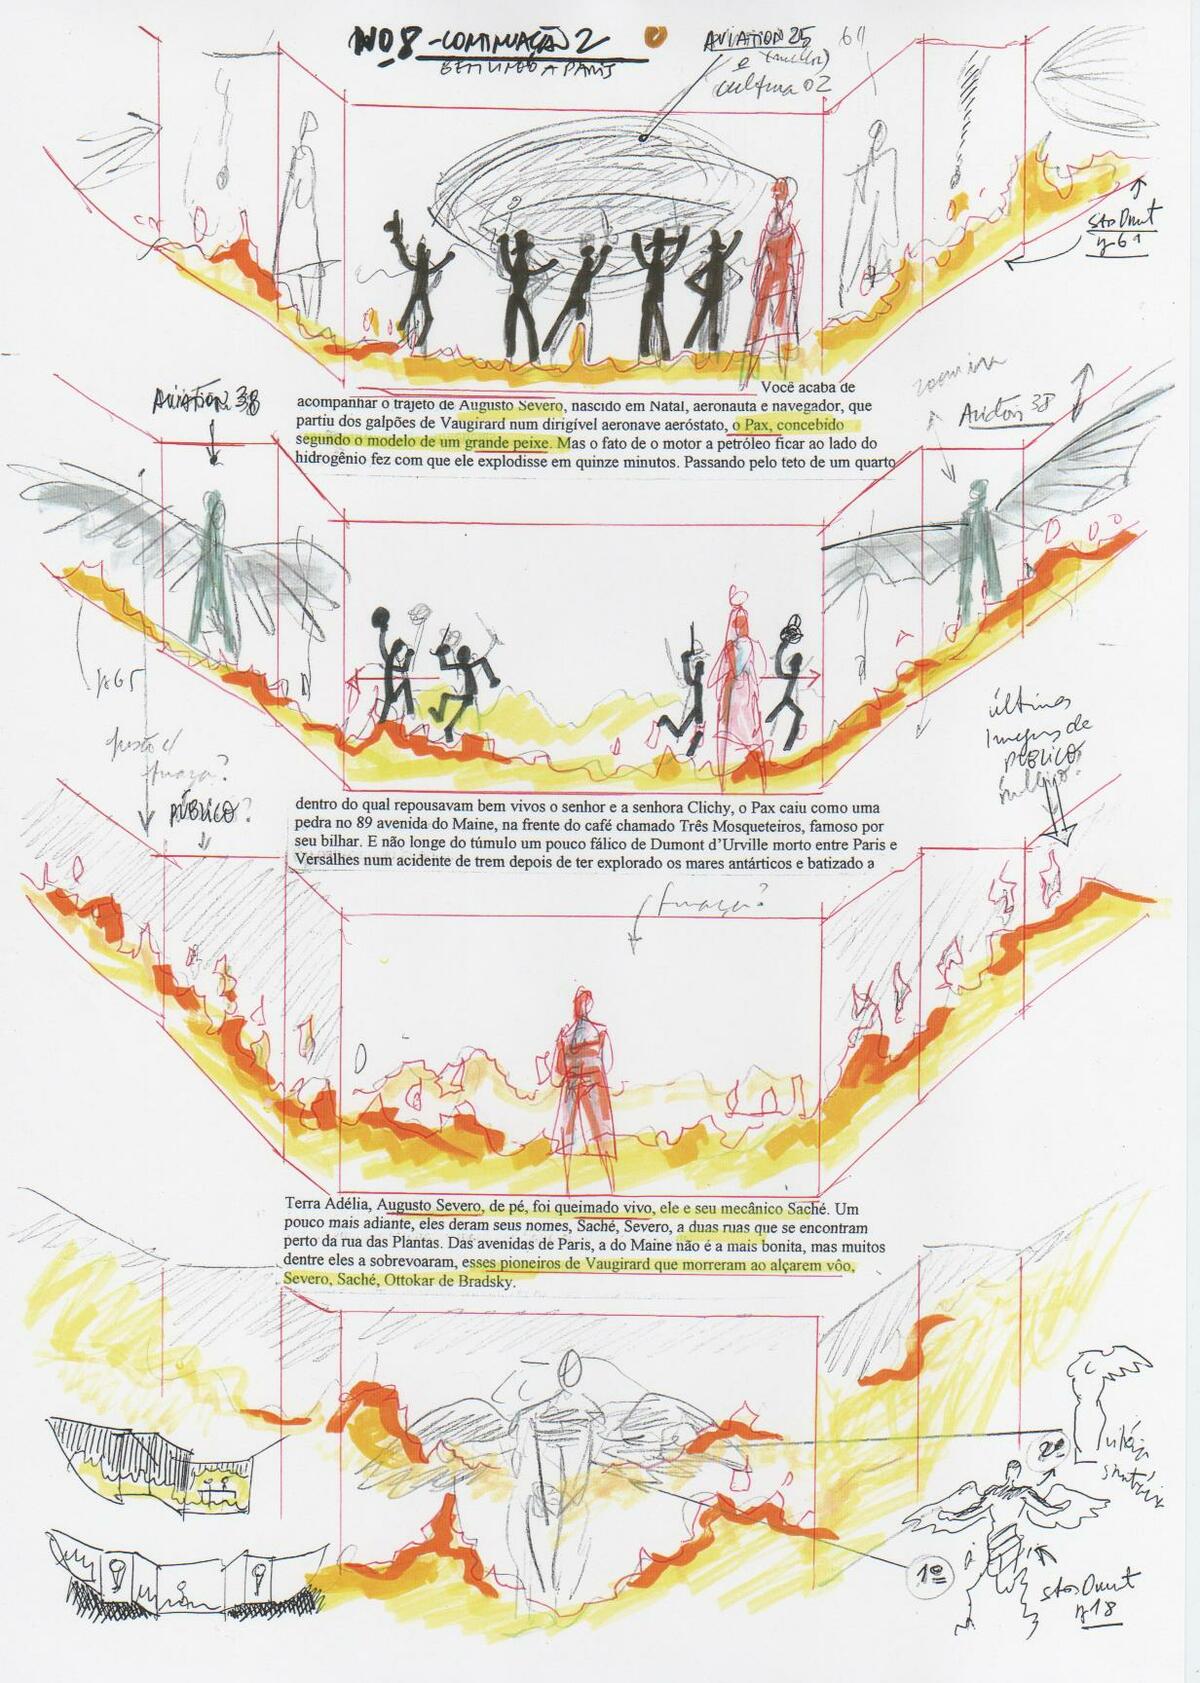 Nº 8 - CONTINUAÇÃO 2
BEM VINDO A PARIS
AVIATION 25
e
cultura 02
Stos Dmt
Você acaba de
acompanhar o trajeto de Augusto Severo, nascido em Natal, aeronauta e navegador, que
partiu dos galpões de Vaugirard num dirigível aeronave aeróstato, o Pax, concebido
segundo o modelo de um grande peixe. Mas o fato de o motor a petróleo ficar ao lado do
hidrogênio fez com que ele explodisse em quinze minutos. Passando pelo teto de um quarto
AVIATION 38
p65
PÚBLICO?
últimas
imagens de
PÚBLICO
dentro do qual repousavam bem vivos o senhor e a senhora Clichy, o Pax caiu como uma
pedra no 89 avenida do Maine, na frente do café chamado Três Mosqueteiros, famoso por
seu bilhar. E não longe do túmulo um pouco fálico de Dumont d’Urville morto entre Paris e
Versalhes num acidente de trem depois de ter explorado os mares antárticos e batizado a
fumaça?
Terra Adélia, Augusto Severo, de pé, foi queimado vivo, ele e seu mecânico Saché. Um
pouco mais adiante, eles deram seus nomes, Saché, Severo, a duas ruas que se encontram
perto da rua das Plantas. Das avenidas de Paris, a do Maine não é a mais bonita, mas muitos
dentre eles a sobrevoaram, esses pioneiros de Vaugirard que morreram ao alçarem vôo,
Severo, Saché, Ottokar de Bradsky.
2º
1º
Stos Dmt
p18